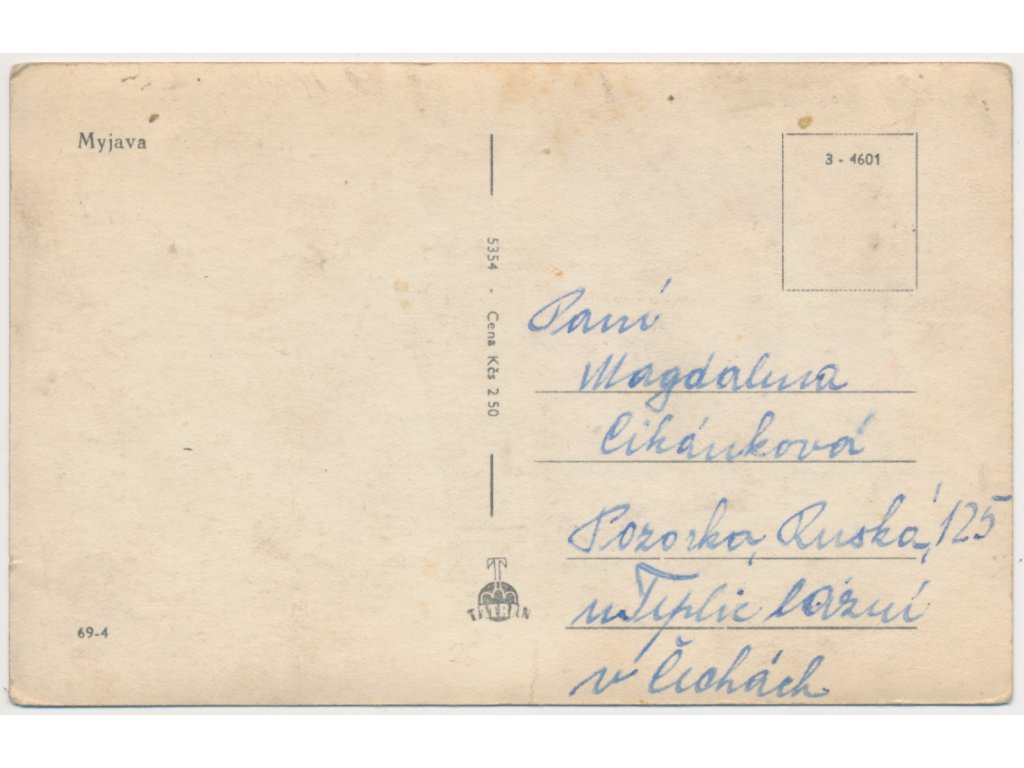 Myjava
3 - 4601
5354 · Cena Kčs 2 50
Paní
Magdalena
Cihánková
Pozorka, Ruská, 125
u Teplic lázní
v Čechách
TATRAN
69-4